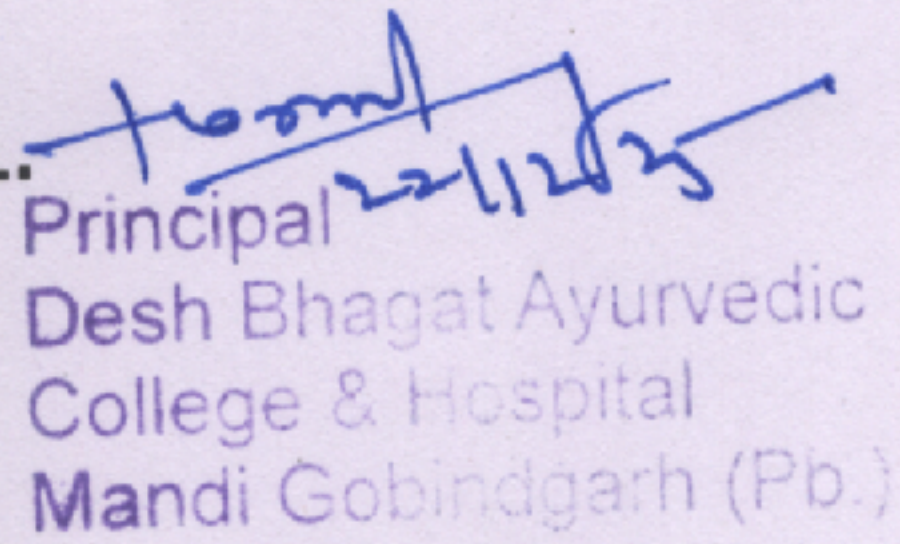 Principal
Desh Bhagat Ayurvedic
College & Hospital
Mandi Gobindgarh (Pb.)